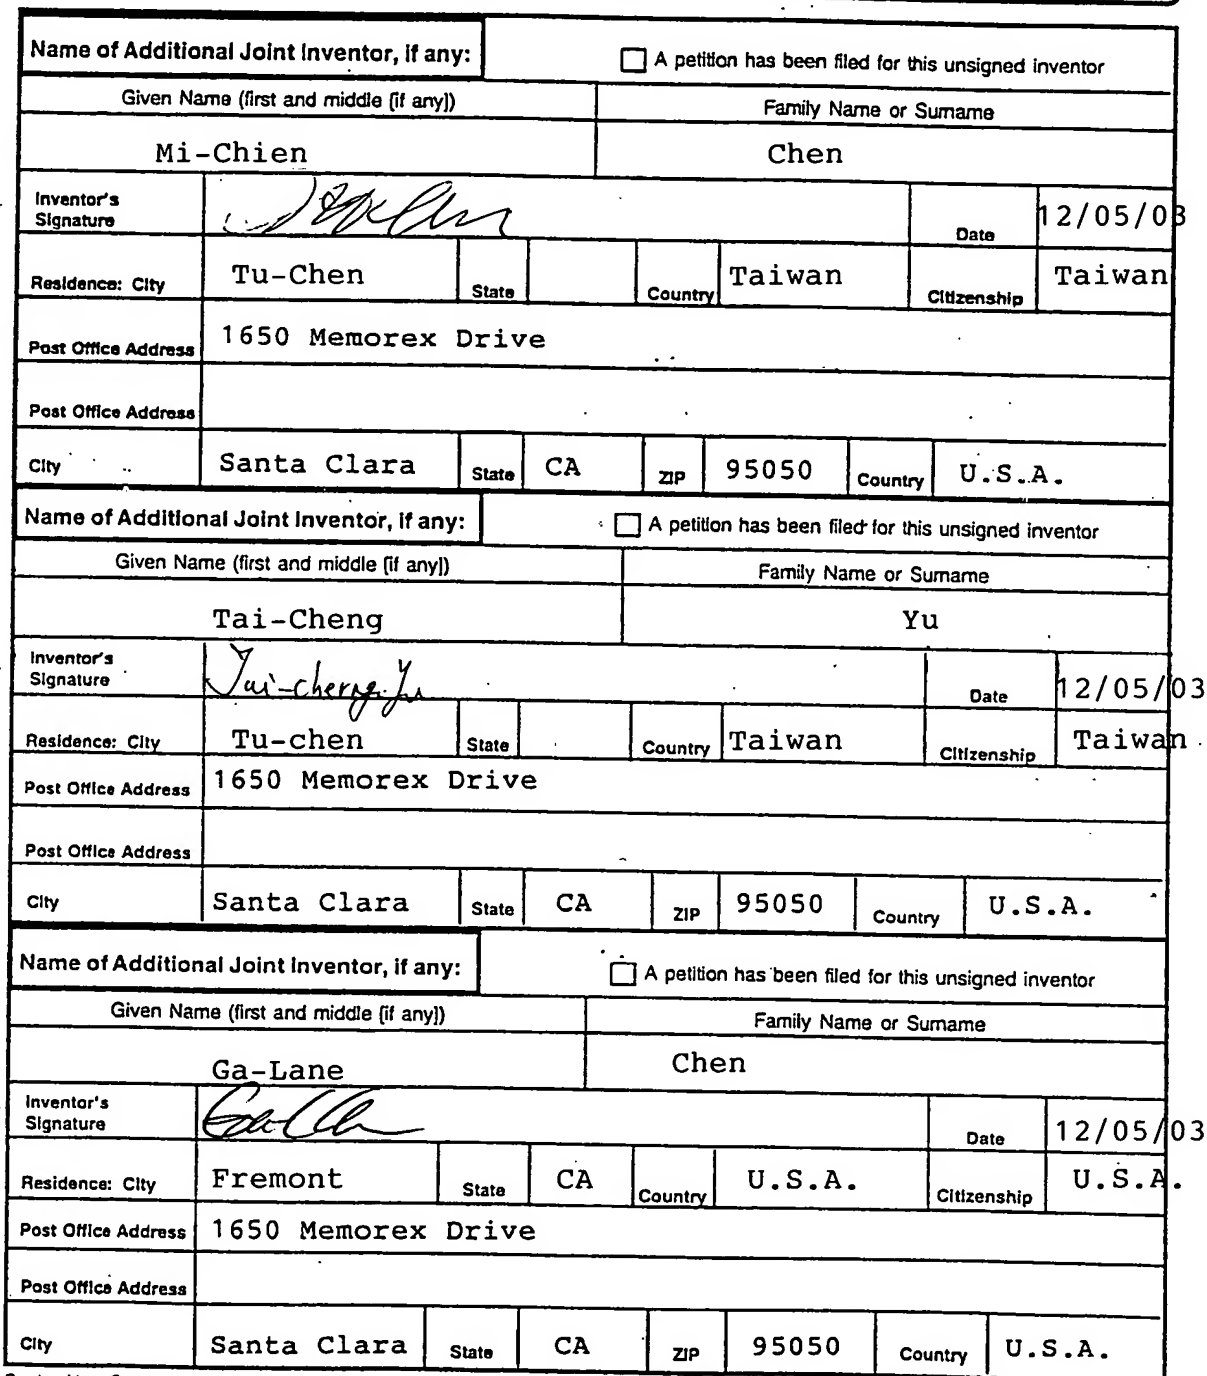 Name of Additional Joint Inventor, if any: A petition has been filed for this unsigned inventor
Given Name (first and middle [if any]) Family Name or Surname
Mi-Chien Chen
Inventor's Signature Date 12/05/03
Residence: City Tu-Chen State Country Taiwan Citizenship Taiwan
Post Office Address 1650 Memorex Drive
Post Office Address
City Santa Clara State CA ZIP 95050 Country U.S.A.
Name of Additional Joint Inventor, if any: A petition has been filed for this unsigned inventor
Given Name (first and middle [if any]) Family Name or Surname
Tai-Cheng Yu
Inventor's Signature Tai-cheng Yu Date 12/05/03
Residence: City Tu-chen State Country Taiwan Citizenship Taiwan
Post Office Address 1650 Memorex Drive
Post Office Address
City Santa Clara State CA ZIP 95050 Country U.S.A.
Name of Additional Joint Inventor, if any: A petition has been filed for this unsigned inventor
Given Name (first and middle [if any]) Family Name or Surname
Ga-Lane Chen
Inventor's Signature Date 12/05/03
Residence: City Fremont State CA Country U.S.A. Citizenship U.S.A.
Post Office Address 1650 Memorex Drive
Post Office Address
City Santa Clara State CA ZIP 95050 Country U.S.A.